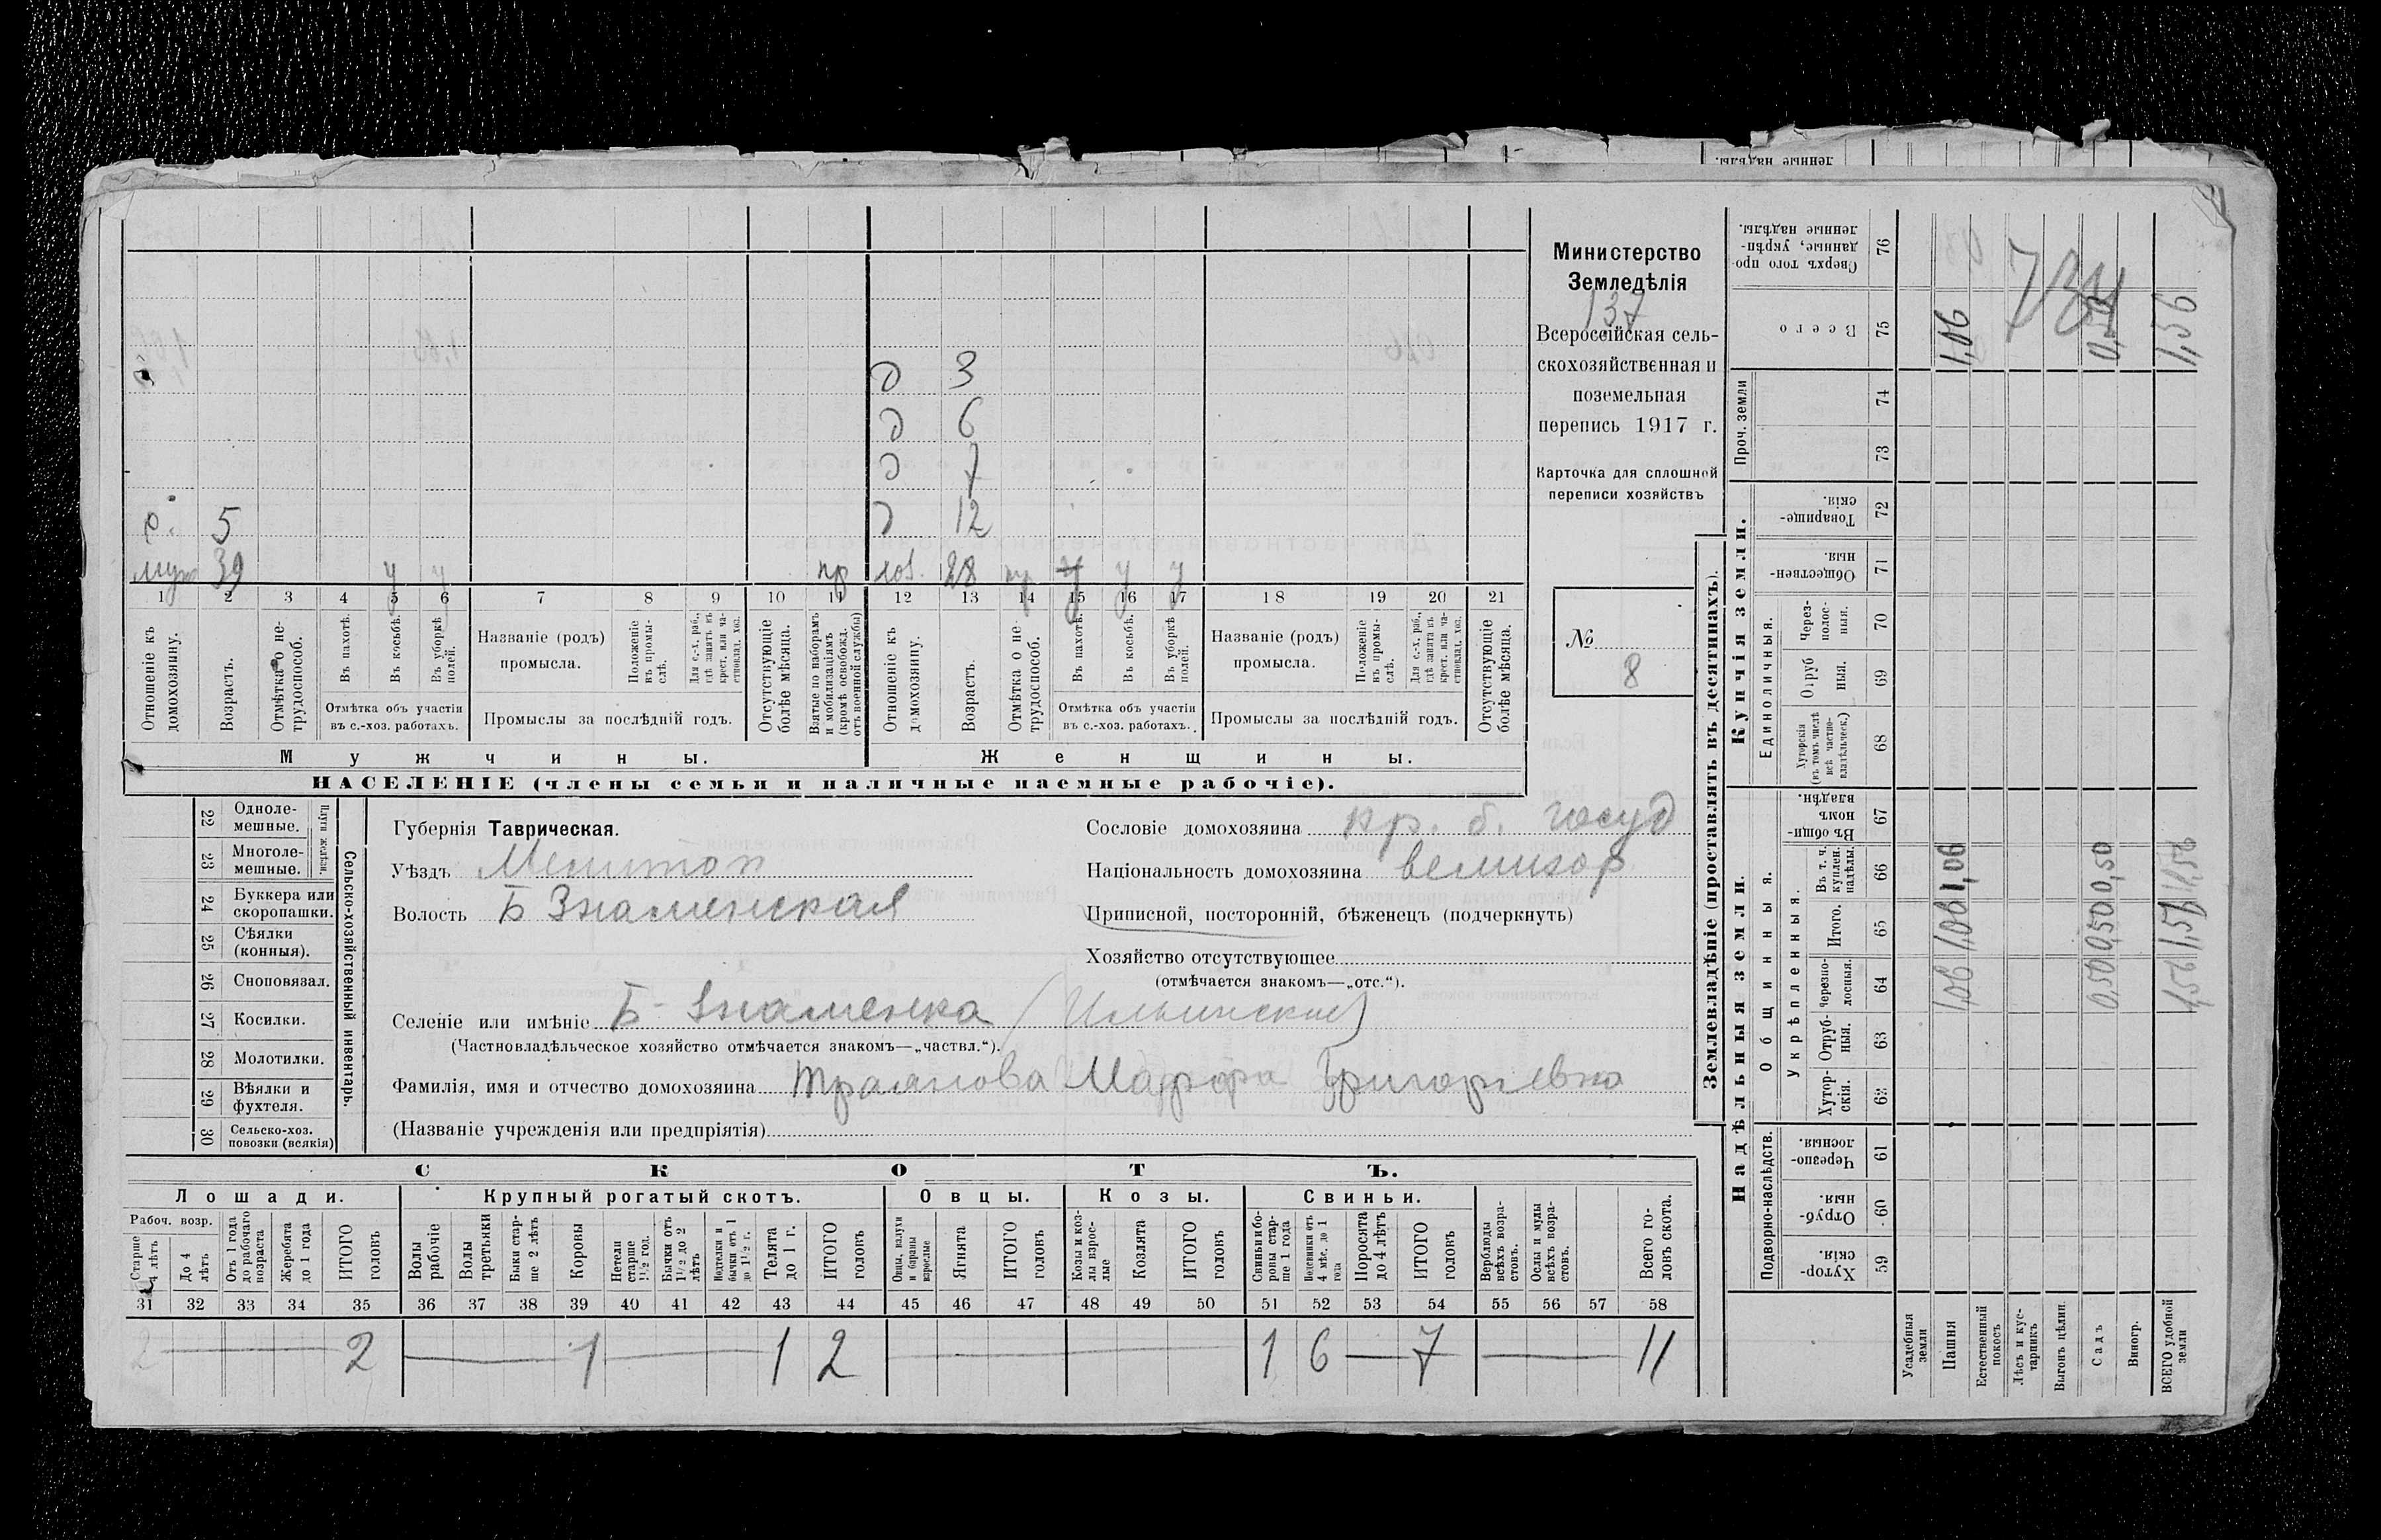 ленные надѣлы.
Министерство
Земледѣлія
137
Всероссійская сель-
скохозяйственная и
поземельная
перепись 1917 г.
Карточка для сплошной
переписи хозяйствъ
№
8
д 3
д 6
д 7
д 12
с. 5
муж 39 у у пр хоз. 28 пр у у у
1 2 3 4 5 6 7 8 9 10 11 12 13 14 15 16 17 18 19 20 21
Отношеніе къ домохозяину.
Возрастъ.
Отмѣтка о не-трудоспособ.
Въ пахотѣ.
Въ косьбѣ.
Въ уборкѣ полей.
Отмѣтка объ участіи
въ с.-хоз. работахъ.
Названіе (родъ)
промысла.
Положеніе въ промы-слѣ.
Для с.-х. раб., гдѣ занятъ въ крест. или ча-стновлад. хоз.
Промыслы за послѣдній годъ.
Отсутствующіе болѣе мѣсяца.
Взятые по наборамъ и мобилизаціямъ (кромѣ освобожд. отъ военной службы)
Отношеніе къ домохозяину.
Возрастъ.
Отмѣтка о не-трудоспособ.
Въ пахотѣ.
Въ косьбѣ.
Въ уборкѣ полей.
Отмѣтка объ участіи
въ с.-хоз. работахъ.
Названіе (родъ)
промысла.
Положеніе въ промы-слѣ.
Для с.-х. раб., гдѣ занята въ крест. или ча-стновлад. хоз.
Промыслы за послѣдній годъ.
Отсутствующіе болѣе мѣсяца.
Мужчины. Женщины.
НАСЕЛЕНІЕ (члены семьи и наличные наемные рабочіе).
22 Одноле-мешные.
23 Многоле-мешные.
Плуги желѣзн.
24 Буккера или скоропашки.
25 Сѣялки (конныя).
26 Сноповязал.
27 Косилки.
28 Молотилки.
29 Вѣялки и фухтеля.
30 Сельско-хоз. повозки (всякія)
Сельско-хозяйственный инвентарь.
Губернія Таврическая.
Уѣздъ Мелитоп
Волость Б Знаменская
Сословіе домохозяина кр. б. госуд
Національность домохозяина великор
Приписной, посторонній, бѣженецъ (подчеркнуть)
Хозяйство отсутствующее
(отмѣчается знакомъ—„отс.“).
Селеніе или имѣніе Б-Знаменка (Ильинская)
(Частновладѣльческое хозяйство отмѣчается знакомъ—„частвл.“).
Фамилія, имя и отчество домохозяина Траянова Марфа Григорьевна
(Названіе учрежденія или предпріятія)
СКОТЪ.
Лошади. Крупный рогатый скотъ. Овцы. Козы. Свиньи.
Рабоч. возр.
Старше 4 лѣтъ
До 4 лѣтъ
Отъ 1 года до рабочаго возраста
Жеребята до 1 года
ИТОГО головъ
Волы рабочіе
Волы третьяки
Быки стар-ше 2 лѣтъ
Коровы
Нетели старше 1½ год.
Бычки отъ 1½ до 2 лѣтъ
Подтелки и бычки отъ 1 до 1½ г.
Телята до 1 г.
ИТОГО головъ
Овцы, валухи и бараны взрослые
Ягнята
ИТОГО головъ
Козы и коз-лы взрос-лые
Козлята
ИТОГО головъ
Свиньи и бо-ровы стар-ше 1 года
Подсвинки отъ 4 мѣс. до 1 года
Поросята до 4 лѣтъ
ИТОГО головъ
Верблюды всѣхъ возра-стовъ.
Ослы и мулы всѣхъ возра-стовъ.
Всего го-ловъ скота.
31 32 33 34 35 36 37 38 39 40 41 42 43 44 45 46 47 48 49 50 51 52 53 54 55 56 57 58
2 2 1 1 2 1 6 7 11
Землевладѣніе (проставлять въ десятинахъ).
Надѣльныя земли. Купчія земли.
Подворно-наслѣдств.
Общинныя.
Укрѣпленныя.
Единоличныя.
Проч. земли
59 Хутор-скія.
60 Отруб-ныя.
61 Черезпо-лосныя.
62 Хутор-скія.
63 Отруб-ныя.
64 Черезпо-лосныя.
65 Итого.
66 Въ т. ч. куплен. надѣлы.
67 Въ общи-номъ владѣн.
68 Хуторскія (въ томъ числѣ всѣ частно-владѣльческ.)
69 Отруб ныя.
70 Через-полос-ныя.
71 Обществен-ныя.
72 Товарище-скія.
73
74
75 Всего
76 Сверхъ того про-данные, укрѣп-ленные надѣлы.
Усадебныя земли
Пашня 1,06 1,06 1,06 1,06
Естественный покосъ
Лѣсъ и кус-тарникъ
Выгонъ цѣлин.
Садъ 0,50 0,50 0,50 0,50
Виногр.
ВСЕГО удобной земли 1,56 1,56 1,56 1,56